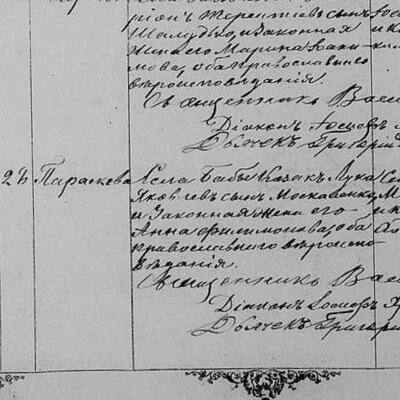 ріонъ Терентіевъ сынъ
Шалудько, и законная
жена его Марина Іоаки-
мова, оба православнаго
вѣроисповѣданія.
Священникъ Васи
Діаконъ Іосифъ
Дьячекъ Григорій
25 Параскева Села Бабы Казакъ Лука
Яковлевъ сынъ Москаленко
и законная жена его
Анна Филимонова, оба
православнаго вѣроиспо-
вѣданія.
Священникъ Васи
Діаконъ Іосифъ
Дьячекъ Григорі